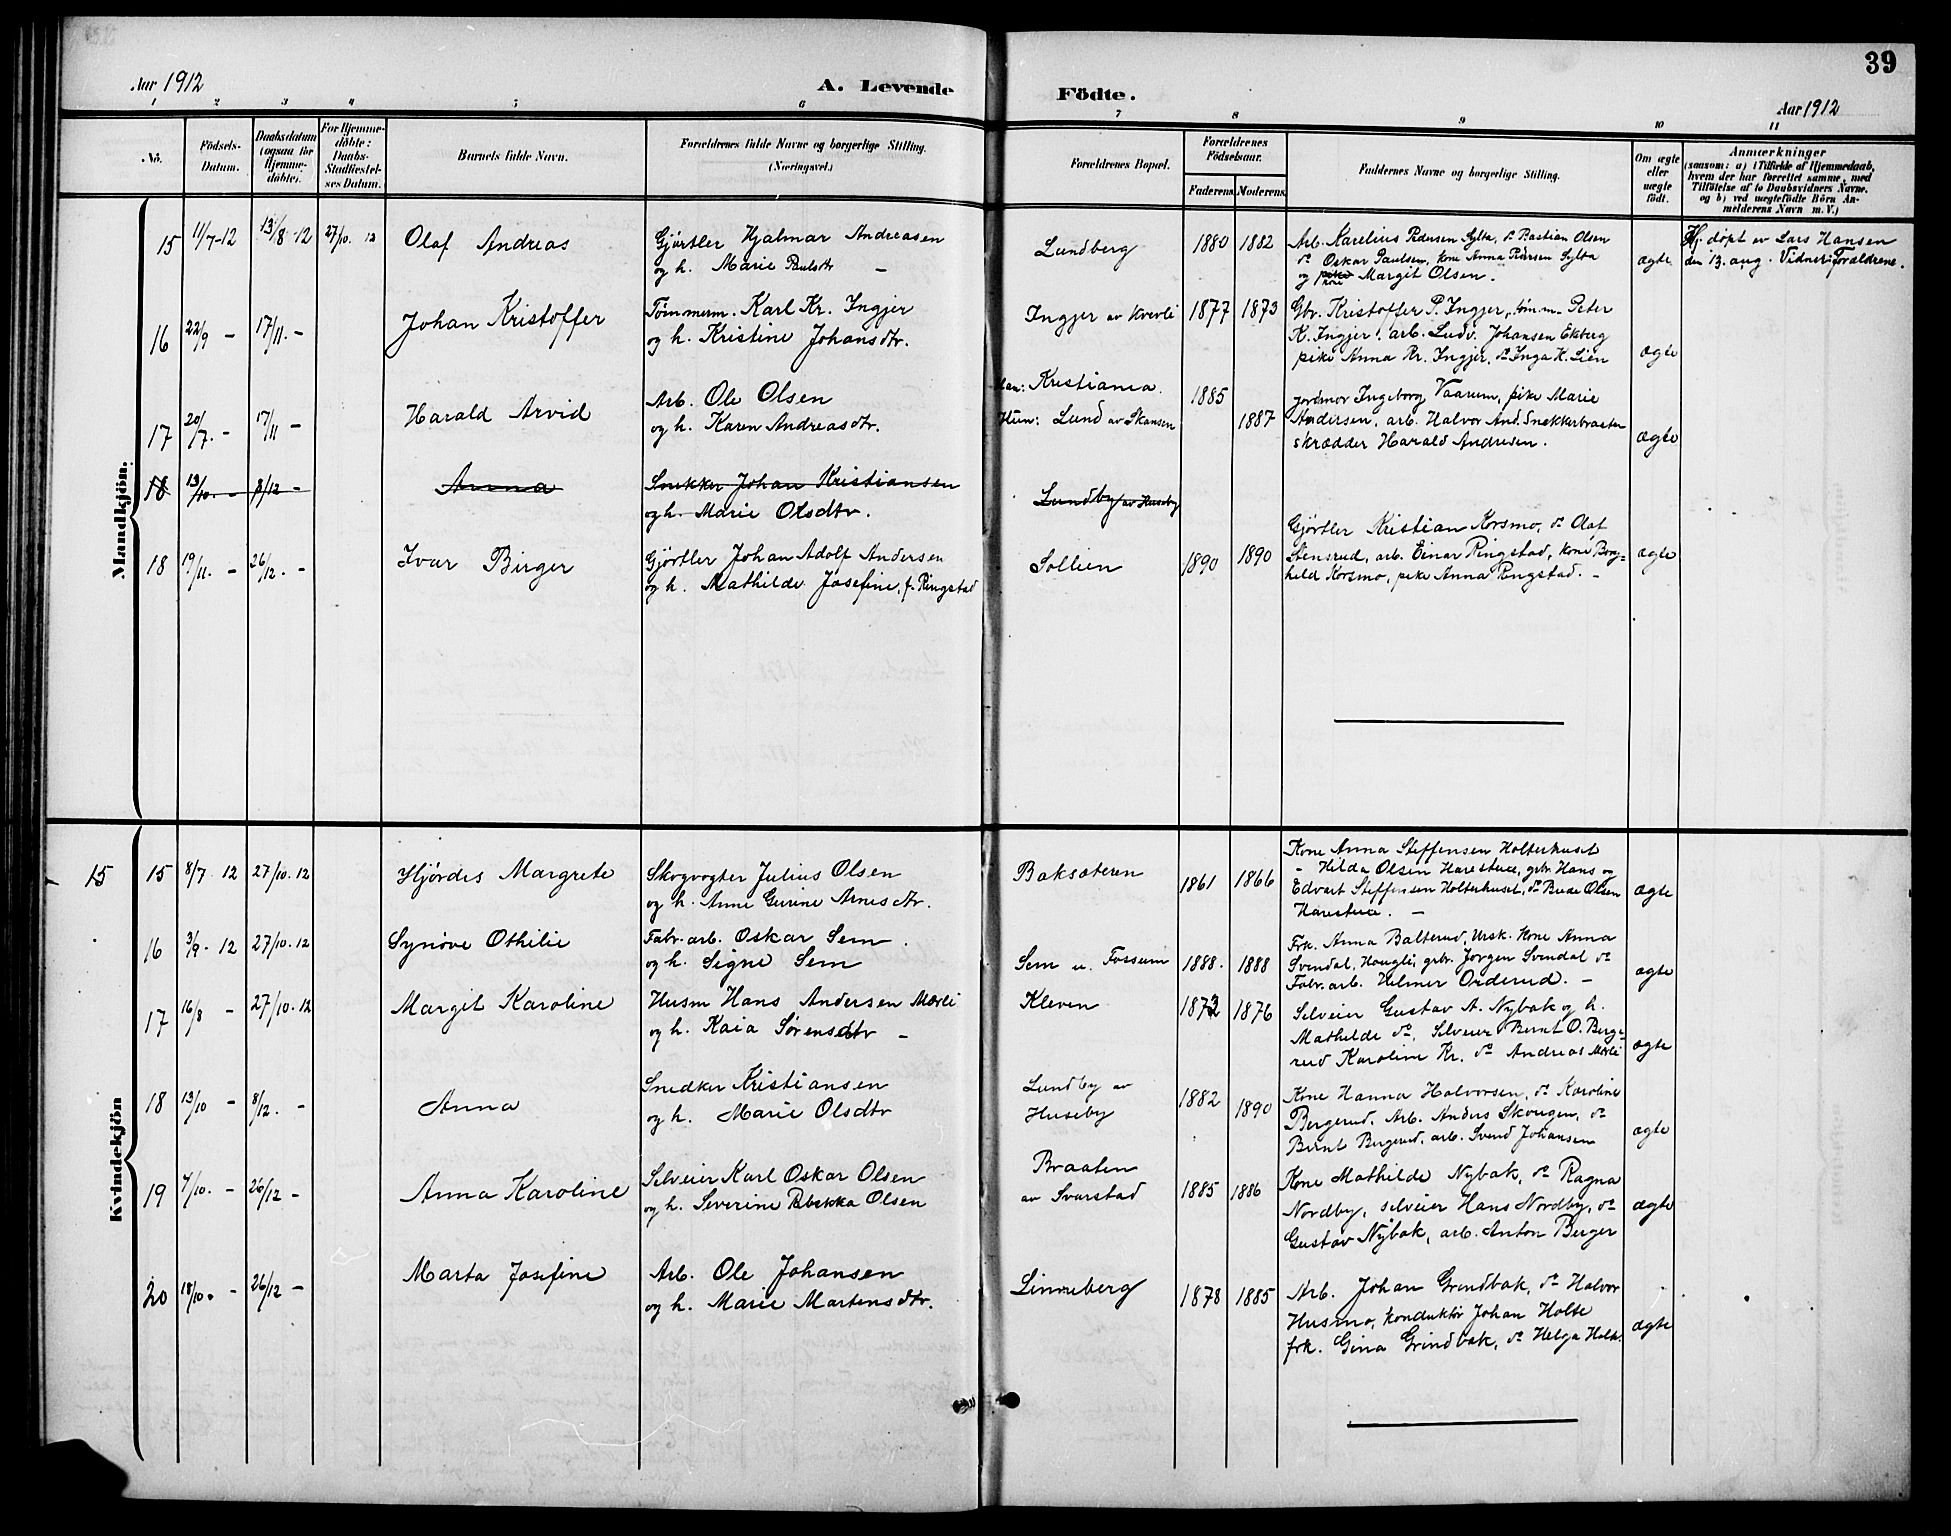 39
Aar 1912
A. Levende Födte.
Aar 1912
1 2 3 4 5 6 7 8 9 10 11
No.
Födsels-
Datum.
Daabsdatum
(ogsaa for
Hjemme-
döbte).
For Hjemme-
döbte:
Daabs-
Stadfæstel-
ses Datum.
Barnets fulde Navn.
Forældrenes fulde Navne og borgerlige Stilling.
(Næringsvei.)
Forældrenes Bopæl.
Forældrenes
Födselsaar.
Faderens. Moderens.
Faddernes Navne og borgerlige Stilling.
Om ægte
eller
uægte
födt.
Anmærkninger
(saasom: a) i Tilfælde af Hjemmedaab,
hvem der har forrettet samme, med
Tilföielse af to Daabsvidners Navne.
og b) ved uægtefödte Börn An-
melderens Navn m. V.)
Mandkjön.
15 11/7-12 13/8-12 27/10. 12 Olaf Andreas
Gjørtler Hjalmar Andreasen
og h. Marie Paulsdtr –
Lundberg 1880 1882
Arb. Karelius Pedersen Sylta, do Bastian Olsen
do Oskar Paulsen, kone Anna Larsen Sylta
og pike kone Margit Olsen.
ægte
Hj. døpt av Lars Hansen
den 13. aug. Vidner: Forældrene.
16 22/9 – 17/11. – Johan Kristoffer
Tømmerm. Karl Kr. Ingjer
og h. Kristine Johansdtr.
Ingjer av Kverli 1877 1873
Gbr. Kristoffer P. Ingjer, tømm. Peter
K. Ingjer, arb. Ludv. Johansen Ekberg
pike Anna Kr. Ingjer, do Inga K. Lien
ægte
17 20/7. – 17/11 – Harald Arvid
Arb. Ole Olsen
og h. Karen Andreasdtr.
Han: Kristiania.
Hun: Lund av Skansen
1885 1887
Jordmor Ingeborg Vaarum, pike Marie
Andersen, arb. Halvor And. Snekkerbraaten
skrædder Harald Andresen.
ægte
18 13/10. – 8/12 – Anna
Snekker Johan Kristiansen
og h. Marie Olsdtr.
Lundby av Huseby
18 19/11. – 26/12. – Ivar Birger
Gjörtler Johan Adolf Andersen
og h. Mathilde Josefine, f. Ringstad
Sollien 1890 1890
Gjørtler Kristian Korsmo, do Olaf
Stensrud, arb. Einar Ringstad, kone Borg-
hild Korsmo, pike Anna Ringstad. –
ægte
Kvindekjön
15 15 8/7 12 27/10. 12 Hjördis Margrete
Skogvogter Julius Olsen
og h. Anne Gurine Arnesdtr.
Baksæteren 1861 1866
Kone Anna Steffensen Holterhuset
– Hilda Olsen Harestua, gbr. Hans og
Edvart Steffensen Holterhuset, do Brede Olsen
Harestua. –
ægte
16 3/9. 12 27/10. 12 Synöve Othilie
Fabr. arb. Oskar Sem
og h. Signe Sem
Sem u. Fossum 1888. 1888
Frk. Anna Balterud, Ursk. kone Anna
Svendal, Haugli, gbr. Jørgen Svendal do
Fabr. arb. Helmer Orderud. –
ægte
17 16/8 – 27/10. 12 Margit Karoline
Husm Hans Andersen Mørli
og h. Kaia Sørensdtr –
Kleven 1873 1876
Selveier Gustav A. Nybak og h.
Mathilde do, Selveier Bernt O. Berge-
rud Karoline Kr. do Andreas Mørli
ægte
18 13/10 – 8/12. – Anna
Snedker Kristiansen
og h. Marie Olsdtr
Lundby av
Huseby
1882 1890
Kone Hanna Halvorsen, do Karoline
Bergerud, Arb. Anders Skougen, do
Bernt Bergerud, arb. Svend Johansen
ægte
19 7/10. – 26/12 – Anna Karoline
Selveier Karl Oskar Olsen
og h. Severine Rebekka Olsen
Braaten
av Svarstad
1885 1886
Kone Mathilde Nybak, do Ragna
Nordby, selveier Hans Nordby, do
Gustav Nybak, arb. Anton Berger
ægte
20 18/10. – 26/12 – Marta Josefine
Arb. Ole Johansen
og h. Marie Martensdtr.
Linneberg 1878 1885
Arb. Johan Grindbak, do Halvor
Husmo, konduktør Johan Holte
frk. Gina Grindbak, do Helga Holte.
ægte